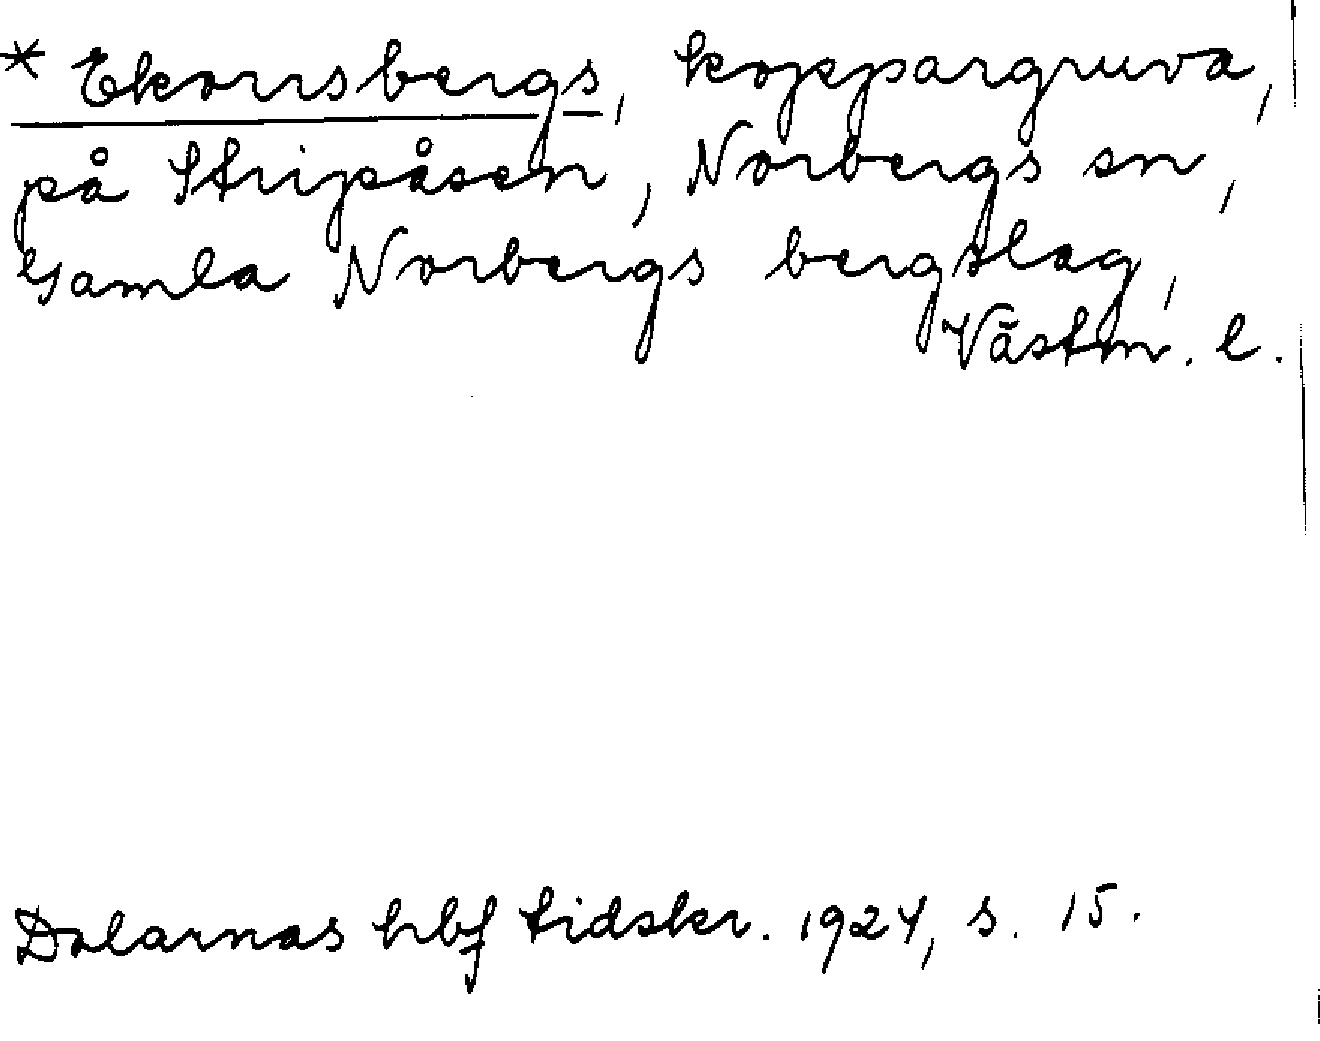 * Ekorrsbergs, koppargruva,
på Stripåsen, Norbergs sn,
Gamla Norbergs bergslag,
Västm. l.
Dalarnas hbf tidskr. 1924, s. 15.